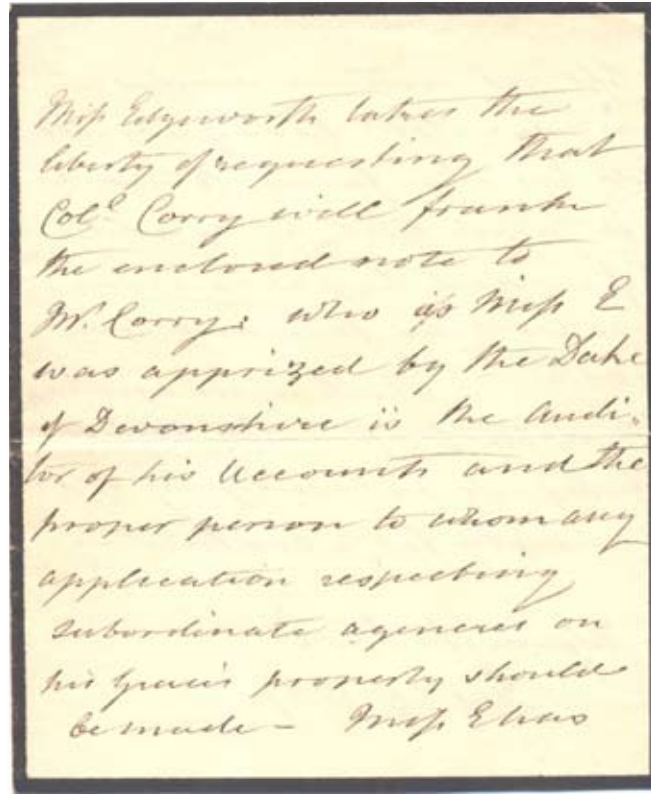 Miss Edgeworth takes the
liberty of requesting that
Colˡ Corry will frank
the enclosed note to
Mr. Corry; who as Miss E
was apprized by the Duke
of Devonshire is the Audi-
tor of his Accounts and the
proper person to whom any
application respecting
subordinate agencies on
his Grace's property should
be made – Miss E has